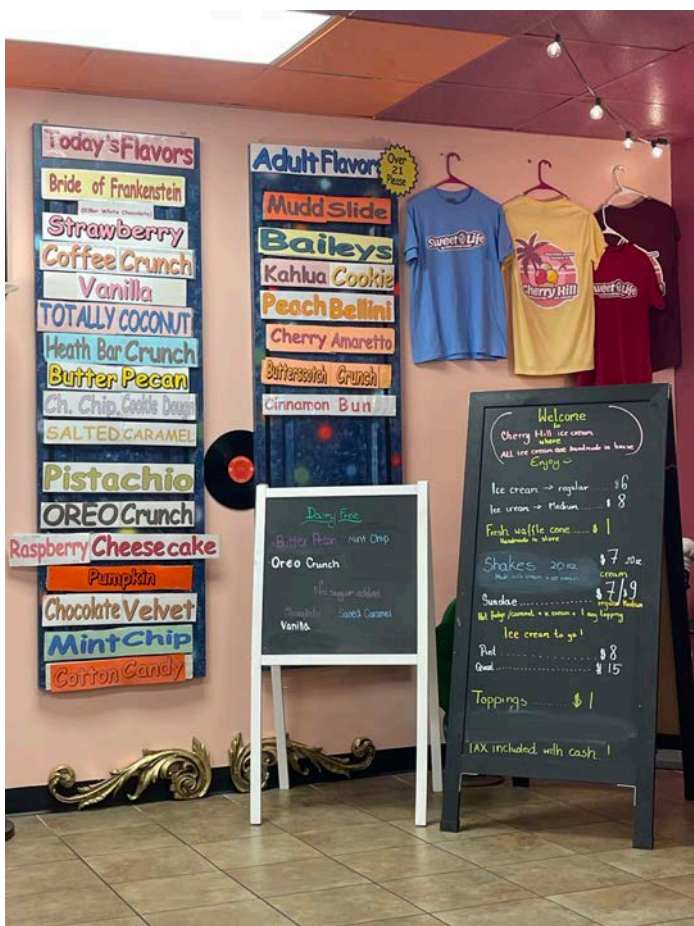 Today's Flavors
Bride of Frankenstein
(Killer White Chocolate)
Strawberry
Coffee Crunch
Vanilla
TOTALLY COCONUT
Heath Bar Crunch
Butter Pecan
Ch. Chip, Cookie Dough
SALTED CARAMEL
Pistachio
OREO Crunch
Raspberry Cheesecake
Pumpkin
Chocolate Velvet
Mint Chip
Cotton Candy
Adult Flavors
Over
21
Please
Mudd Slide
Baileys
Kahlua Cookie
Peach Bellini
Cherry Amaretto
Butterscotch Crunch
Cinnamon Bun
Sweet Life
Cherry Hill
Sweet Life
Dairy Free
Butter Pecan Mint Chip
Oreo Crunch
No sugar added
Chocolate Salted Caramel
Vanilla
Welcome
to
Cherry Hill ice cream
where
ALL ice cream are handmade in house
Enjoy
Ice cream → regular $6
Ice cream → Medium .... $ 8
Fresh waffle cone .... $ 1
Handmade in store
Shakes 20 oz $ 7 20oz
cream
Sundae ................ $ 7/$9
regular Medium
Hot fudge/caramel + w cream + 1 any topping
Ice cream to go!
Pint ................ $ 8
Quart ................ $ 15
Toppings ........ $ 1
TAX included with cash !